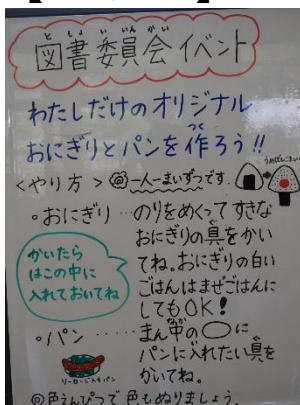 図書委員会イベント
わたしだけのオリジナル
おにぎりとパンを作ろう!!
<やり方> ◎一人一まいずつです。
◦おにぎり…のりをめくってすきな
おにぎりの具をかい
てね。おにぎりの白い
ごはんはまぜごはんに
してもOK!
かいたら
はこの中に
入れておいてね
◦パン……まん中の○に
パンに入れたい具を
かいてね。
ソーセージ入りパン
◎色えんぴつで色もぬりましょう。